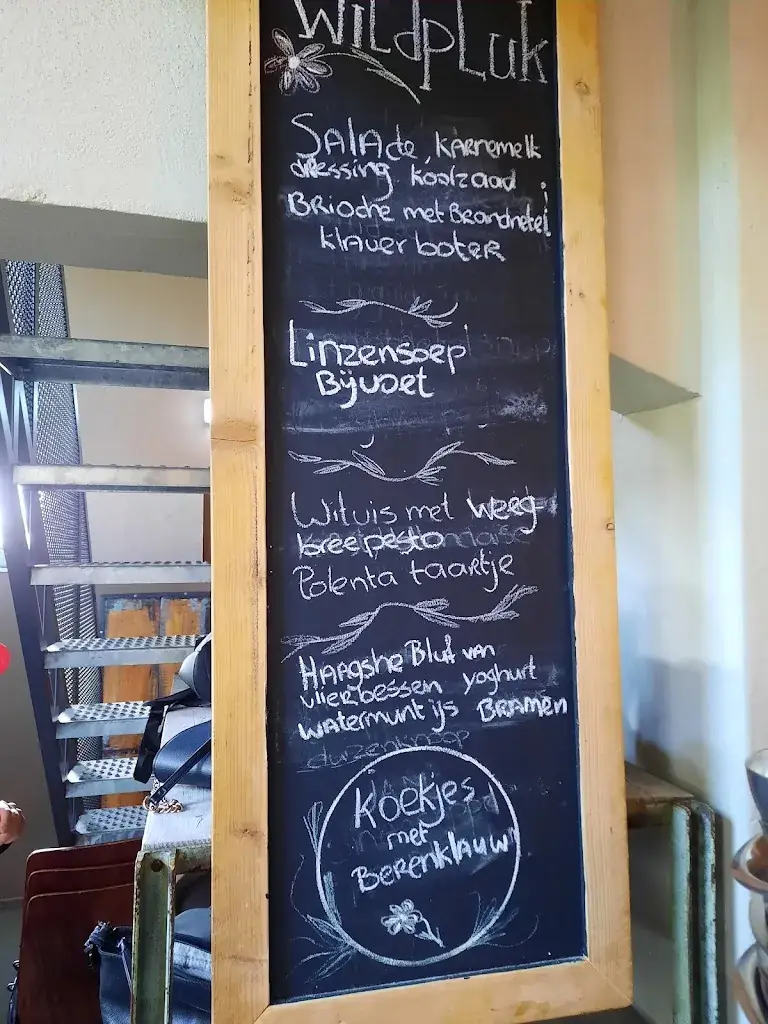 WildpLuk
SALAde, KARNemelk
dressing koolzaad
BRioche met Brandnetel
klaver boter
Linzensoep
Bijvoet
Witvis met weeg-
breepesto
Polenta taartje
HAAgshe Bluf van
vlierbessen yoghurt
watermunt ijs BRAMEN
Koekjes
met
BERENklauw